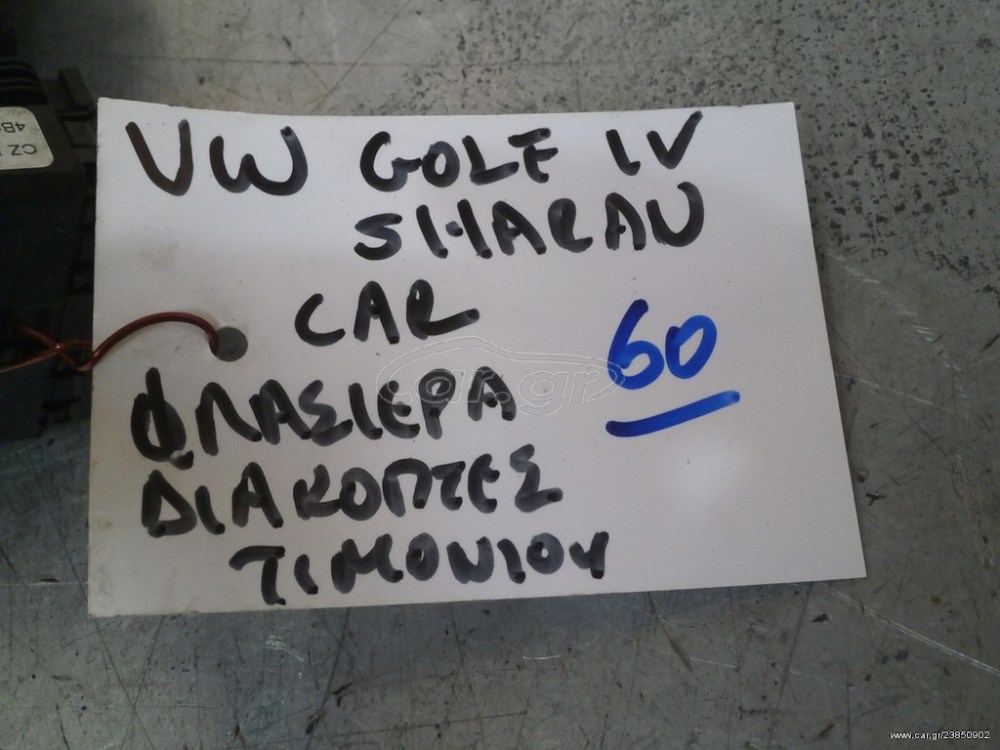 VW GOLF IV
SHARAN
CAR
60
ΦΛΑΣΙΕΡΑ
ΔΙΑΚΟΠΤΕΣ
ΤΙΜΟΝΙΟΥ
CZ
4B
car.gr
www.car.gr/23850902